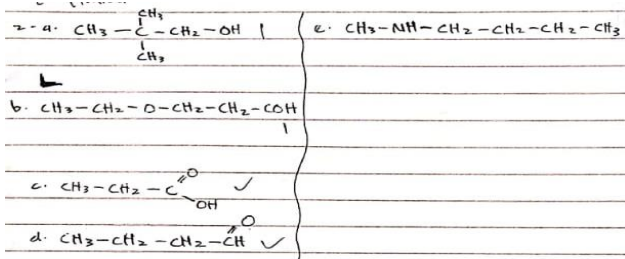 CH₃
2-a. CH₃-C-CH₂-OH
CH₃
b. CH₃-CH₂-O-CH₂-CH₂-COH
c. CH₃-CH₂-C=O
OH
d. CH₃-CH₂-CH₂-CH=O
e. CH₃-NH-CH₂-CH₂-CH₂-CH₃